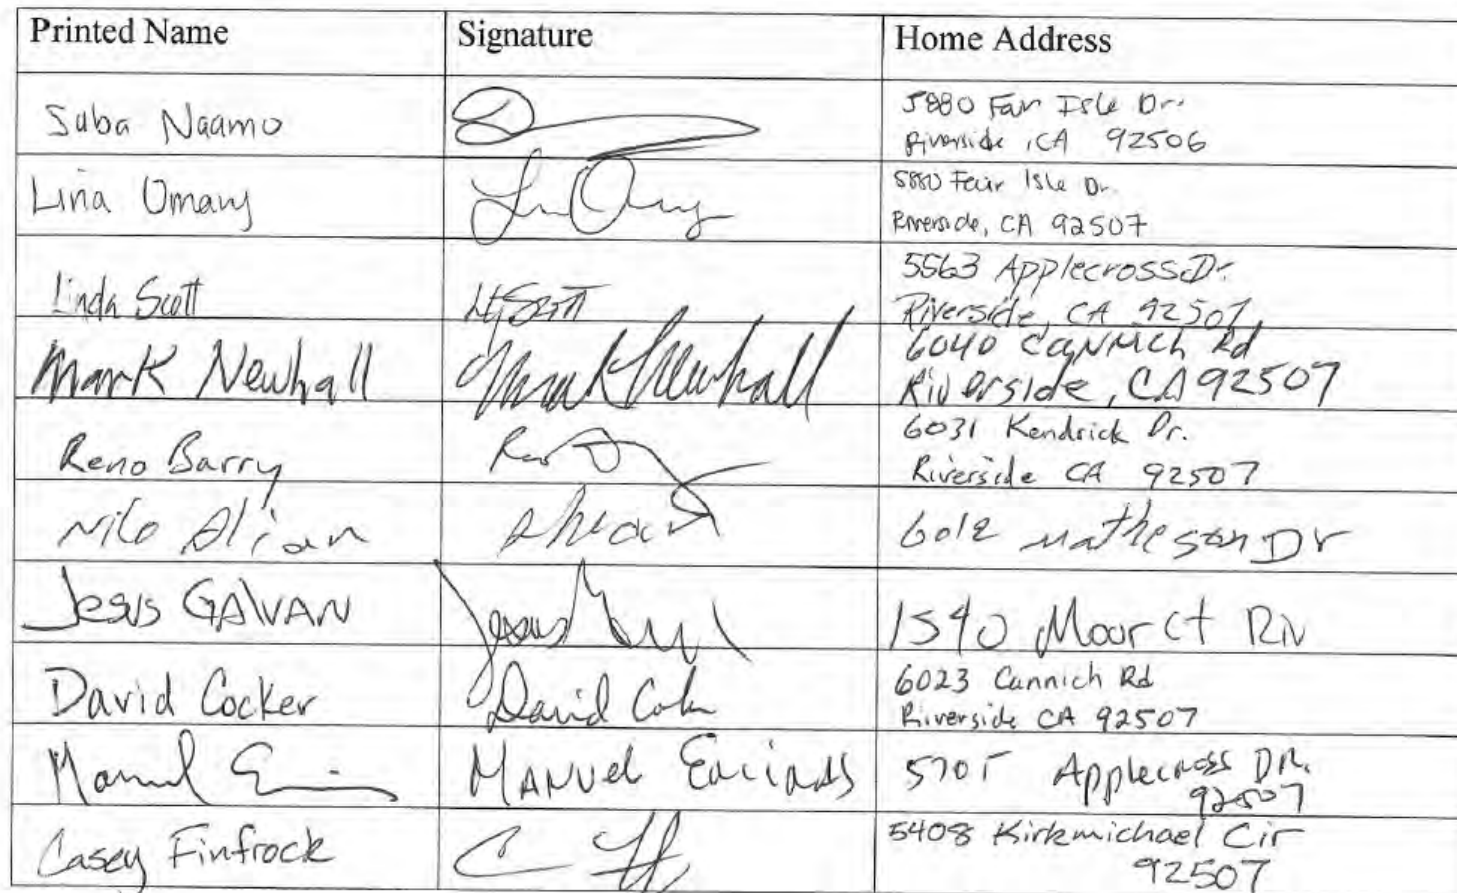 Printed Name Signature Home Address
Suba Naamo 5880 Fair Isle Dr.
Riverside, CA 92506
Lina Umary 5880 Fair Isle Dr.
Riverside, CA 92507
Linda Scott 5563 Applecross Dr.
Riverside, CA 92507
Mark Newhall Mark Newhall 6040 Cannich Rd
Riverside, CA 92507
Reno Barry 6031 Kendrick Dr.
Riverside CA 92507
Nilo 6012 matheson Dr
Jesus GALVAN Jesus 1540 Moor ct Riv
David Cocker David 6023 Cannich Rd
Riverside CA 92507
Manuel MANUEL 5705 Applecross DR.
92507
Casey Finfrock 5408 Kirkmichael Cir
92507